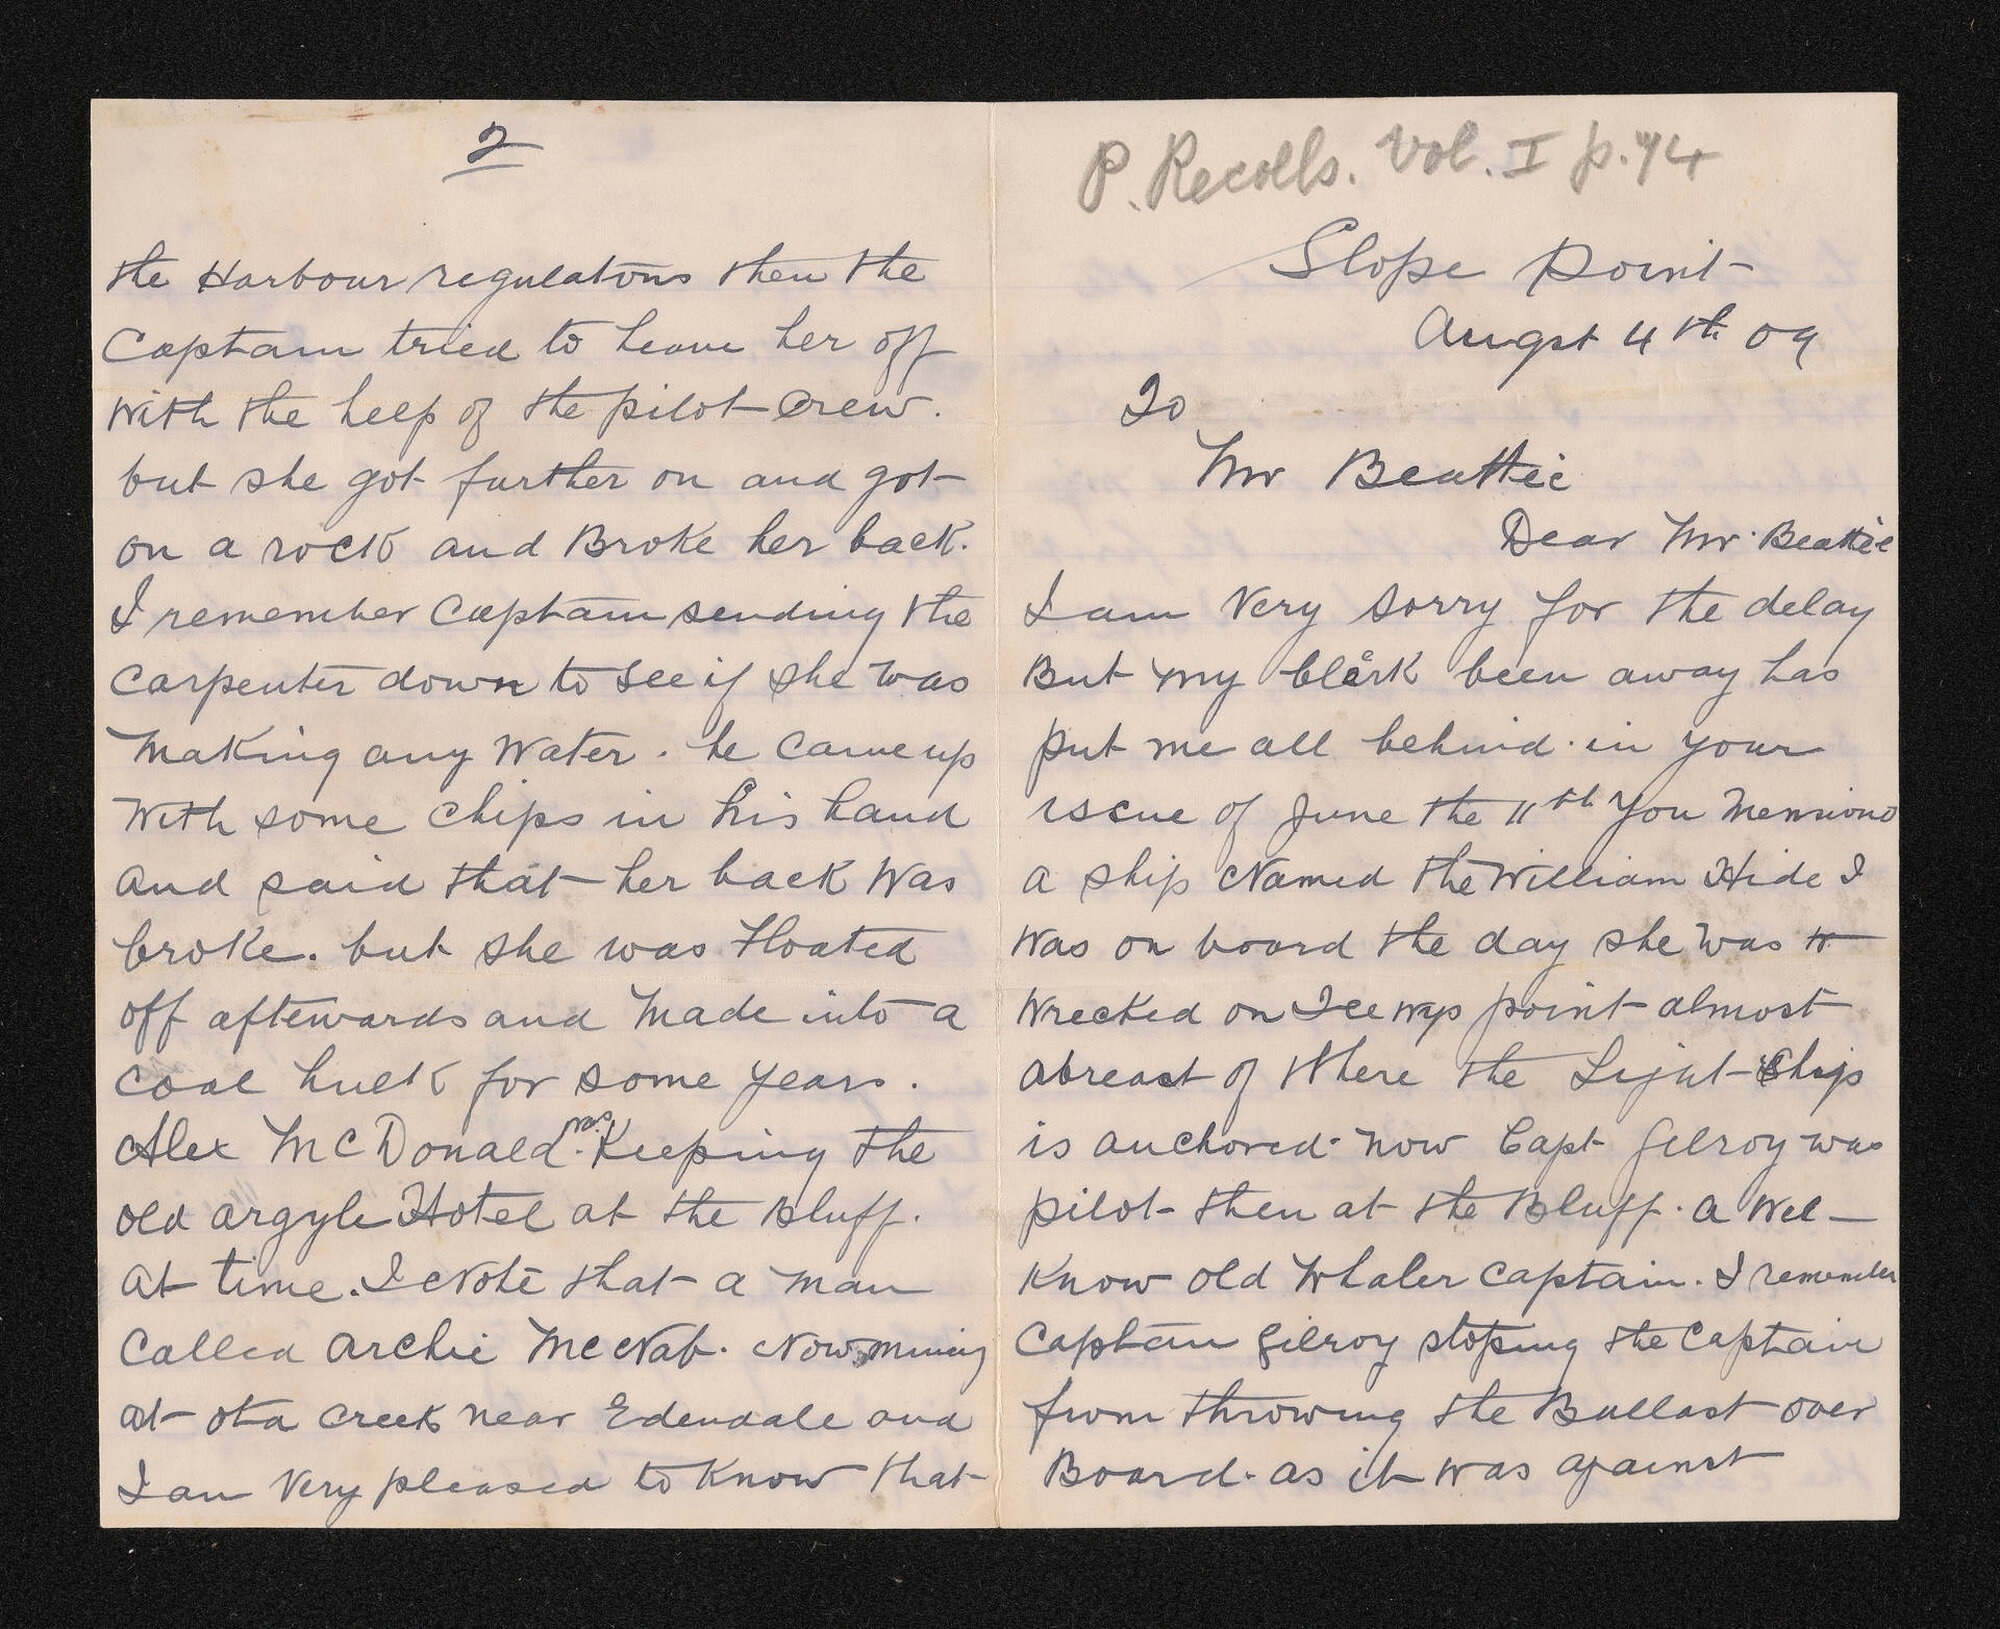 P. Recolls. Vol. I p. 74
Slope Point
Augst 4th 09
To
Mr Beattie
Dear Mr. Beattie
I am Very sorry for the delay
But my clerk been away has
put me all behind. in your
iscue of June the 11th you Mensiond
a ship Named the William Hide I
Was on board the day she was w
Wrecked on Tee wys point almost
abreast of Where the Light Ship
is anchored. now Capt Gilroy was
pilot then at the Bluff. a Wel
Know old Whaler Captain. I remember
Captain Gilroy stoping the Captain
from throwing the Ballast over
Board. as it was against
2
the Harbour regulatons then the
Captain tried to heave her off
With the heep of the pilot Crew.
but she got further on and got
on a rock and Broke her back.
I remember Captain sending the
Carpenter down to see if she was
Making any Water. he came up
With some chips in his hand
and said that her back Was
broke. but she was Floated
off aftewards and Made into a
coal hulk for some years.
Alex McDonald was Keeping the
old argyle Hotel at the Bluff.
At time. I Note that a man
Called Archie McNab. Now mining
at ota Creek near Edendale and
I am Very pleased to Know that